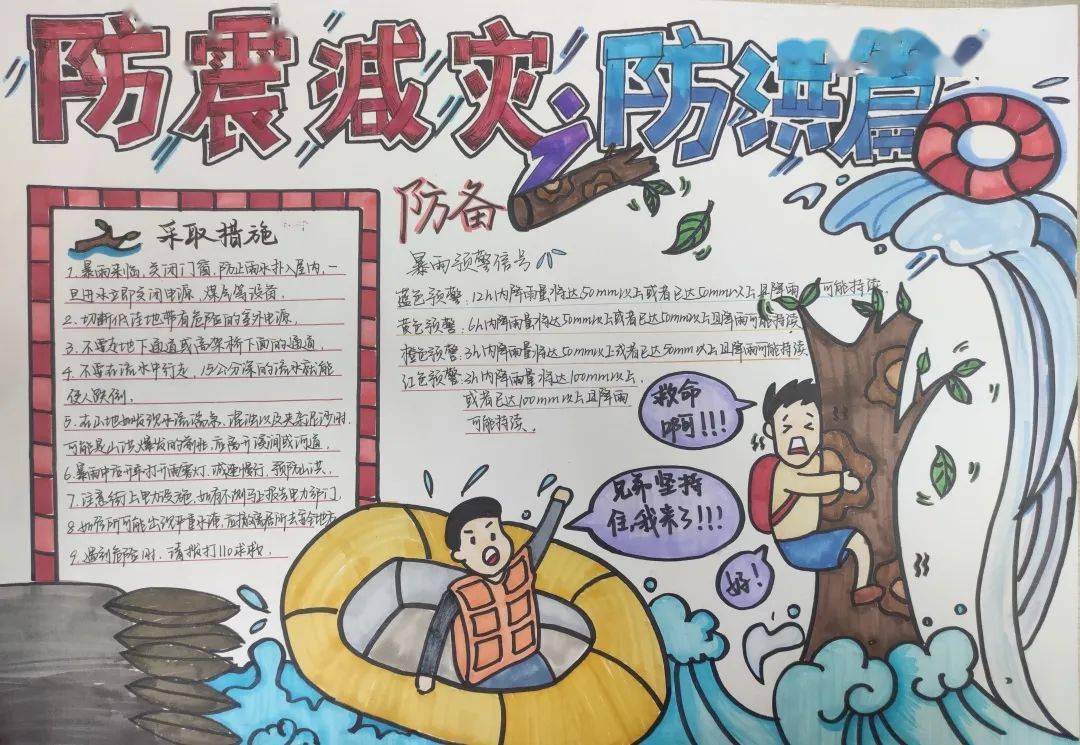 防震减灾之防洪篇
采取措施
1. 暴雨来临,关闭门窗,防止雨水扑入屋内,一
旦进水立即关闭电源、煤气等设备。
2. 切断低洼地带有危险的室外电源。
3. 不要在地下通道或高架桥下面的通道。
4. 不要在流水中行走,15公分深的流水就能
使人跌倒。
5. 在山地如发现水流湍急、混浊以及夹杂泥沙时,
可能是山洪爆发的前兆,应离开溪涧或河道。
6. 暴雨中开车打开雨雾灯,减速慢行,预防山洪。
7. 注意街上电力设施,如有不测马上报告电力部门。
8. 如居所可能出现严重水源,应撤离居所去安全地方
9. 遇到危险时,请拨打110求救。
防备
暴雨预警信号
蓝色预警:12h内降雨量将达50mm以上或者已达50mm以上且降雨可能持续.
黄色预警:6h内降雨量将达50mm以上或者已达50mm以上且降雨可能持续
橙色预警:3h内降雨量将达50mm以上或者已达50mm以上且降雨可能持续
红色预警:3h内降雨量将达100mm以上,
或者已达100mm以上且降雨
可能持续。
救命
啊!!!
兄弟坚持
住,我来了!!!
好!